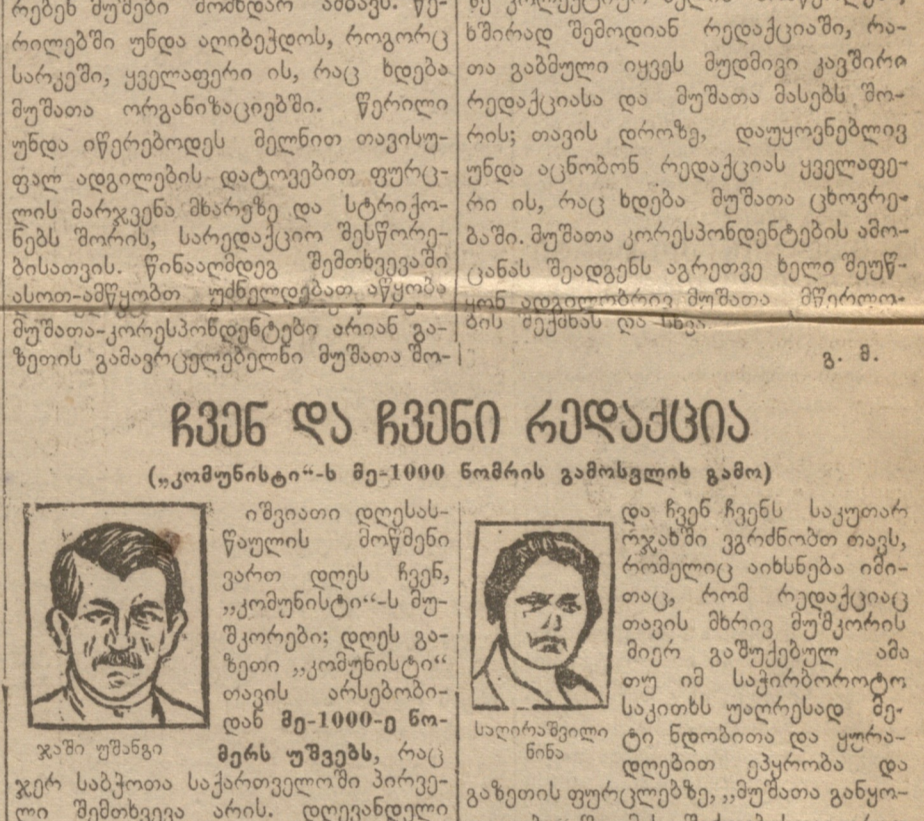 რებენ მუშები მომხდარ ამბავს. წე-
რილებში უნდა აღიბეჭდოს, როგორც
სარკეში, ყველაფერი ის, რაც ხდება
მუშათა ორგანიზაციებში. წერილი
უნდა იწერებოდეს მელნით თავისუ-
ფალ ადგილების დატოვებით ფურც-
ლის მარჯვენა მხარეზე და სტრიქო-
ნებს შორის, სარედაქციო შესწორე-
ბისათვის. წინააღმდეგ შემთხვევაში
ასოთ-ამწყობთ უძნელდებათ აწყობა
მუშათა-კორესპონდენტები არიან გა-
ზეთის გამავრცელებელნი მუშათა შო-
ხშირად შემოდიან რედაქციაში, რა-
თა გაბმული იყვეს მუდმივი კავშირი
რედაქციასა და მუშათა მასებს შო-
რის; თავის დროზე, დაუყოვნებლივ
უნდა აცნობონ რედაქციას ყველაფე-
რი ის, რაც ხდება მუშათა ცხოვრე-
ბაში. მუშათა კორესპონდენტების ამო-
ცანას შეადგენს აგრეთვე ხელი შეუწ-
ყონ ადგილობრივ მუშათა მწერლო-
ბის შექმნას და სხვა.
გ. მ.
ჩვენ და ჩვენი რედაქცია
(„კომუნისტი“-ს მე-1000 ნომრის გამოსვლის გამო)
იშვიათი დღესას-
წაულის მოწმენი
ვართ დღეს ჩვენ,
„კომუნისტი“-ს მუ-
შკორები; დღეს გა-
ზეთი „კომუნისტი“
თავის არსებობი-
დან მე-1000-ე ნო-
მერს უშვებს, რაც
ჯაში უშანგი
ჯერ საბჭოთა საქართველოში პირვე-
ლი შემთხვევა არის. დღევანდელი
და ჩვენ ჩვენს საკუთარ
ოჯახში ვგრძნობთ თავს,
რომელიც აიხსნება იმი-
თაც, რომ რედაქციაც
თავის მხრივ მუშკორის
მიერ გაშუქებულ ამა
თუ იმ საჭირბოროტო
საკითხს უაღრესად მე-
ტი ნდობითა და ყურა-
დღებით ეპყრობა და
საღირაშვილი
ნინა
გაზეთის ფურცლებზე, „მუშათა განყო-